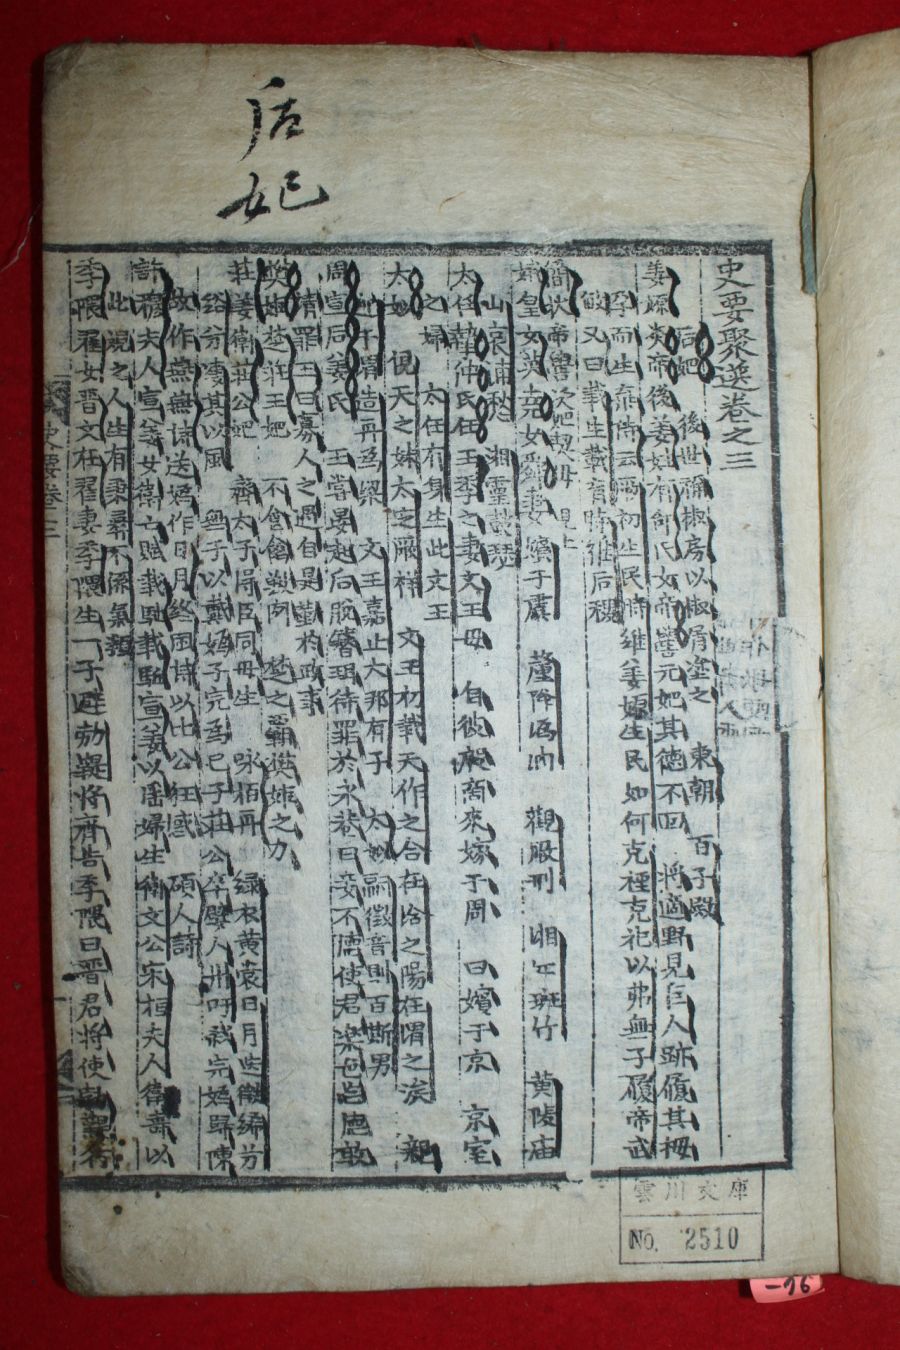 后妃
史要聚選卷之三
后妃 後世稱椒房以椒屑塗之 東朝 百子殿
姜嫄炎帝後姜姓有邰氏女帝嚳元妃其德不回 將適野見巨人跡履其拇
孕而生棄詩云厥初生民時維姜嫄生民如何克禋克祀以弗無子履帝武
敏又曰載生載育時維后稷
簡狄帝嚳次妃契母
娥皇女英堯女舜妻 嬪于虞 釐降媯汭 觀厥刑 湘江班竹 黃陵庙
山 湘靈鼓瑟
太任摯仲氏任王季之妻文王母 自彼殷商來嫁于周 曰嬪于京 京室
之婦 太任有身生此文王
太姒 俔天之妹 文定厥祥 文王初載天作之合在洽之陽在渭之涘 親
迎于渭造舟爲梁 文王嘉止大邦有子 太姒嗣徽音則百斯男
周宣后姜氏 王嘗晏起后脫簪珥待罪於永巷曰妾不德使君樂色忘德敢
請罪王曰寡人之過自是勤於政事
樊姬楚莊王妃 不食禽獸肉 楚之覇樊姬之力
莊姜衛莊公妃 齊太子得臣同母生 咏栢舟 緑衣黃裳日月
綌兮凄其以風 無子以戴媯子完爲己子莊公卒嬖人州吁弑完媯歸陳
故作燕燕詩送媯作日月終風詩以比公狂惑 碩人詩
許穆夫人宣姜女衛亡賦載馳載驅宣姜以淫婦生衛文公宋桓夫人衛壽以
此觀之人生有秉彛不係氣類
季隗翟女晋文在翟妻季隗生二子 將齊告季隗曰晋君將使
史要卷三
雲川文庫
No. 2510
-76